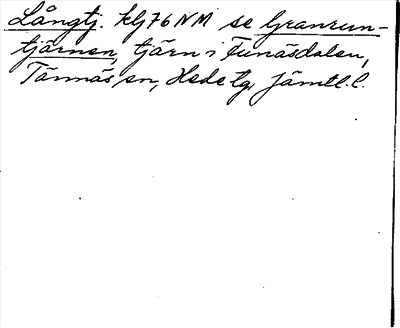 Långtj. klj76NM se Granrun-
tjärnen, tjärn i Funäsdalen,
Tännäs sn, Hede tg, Jämtl. l.